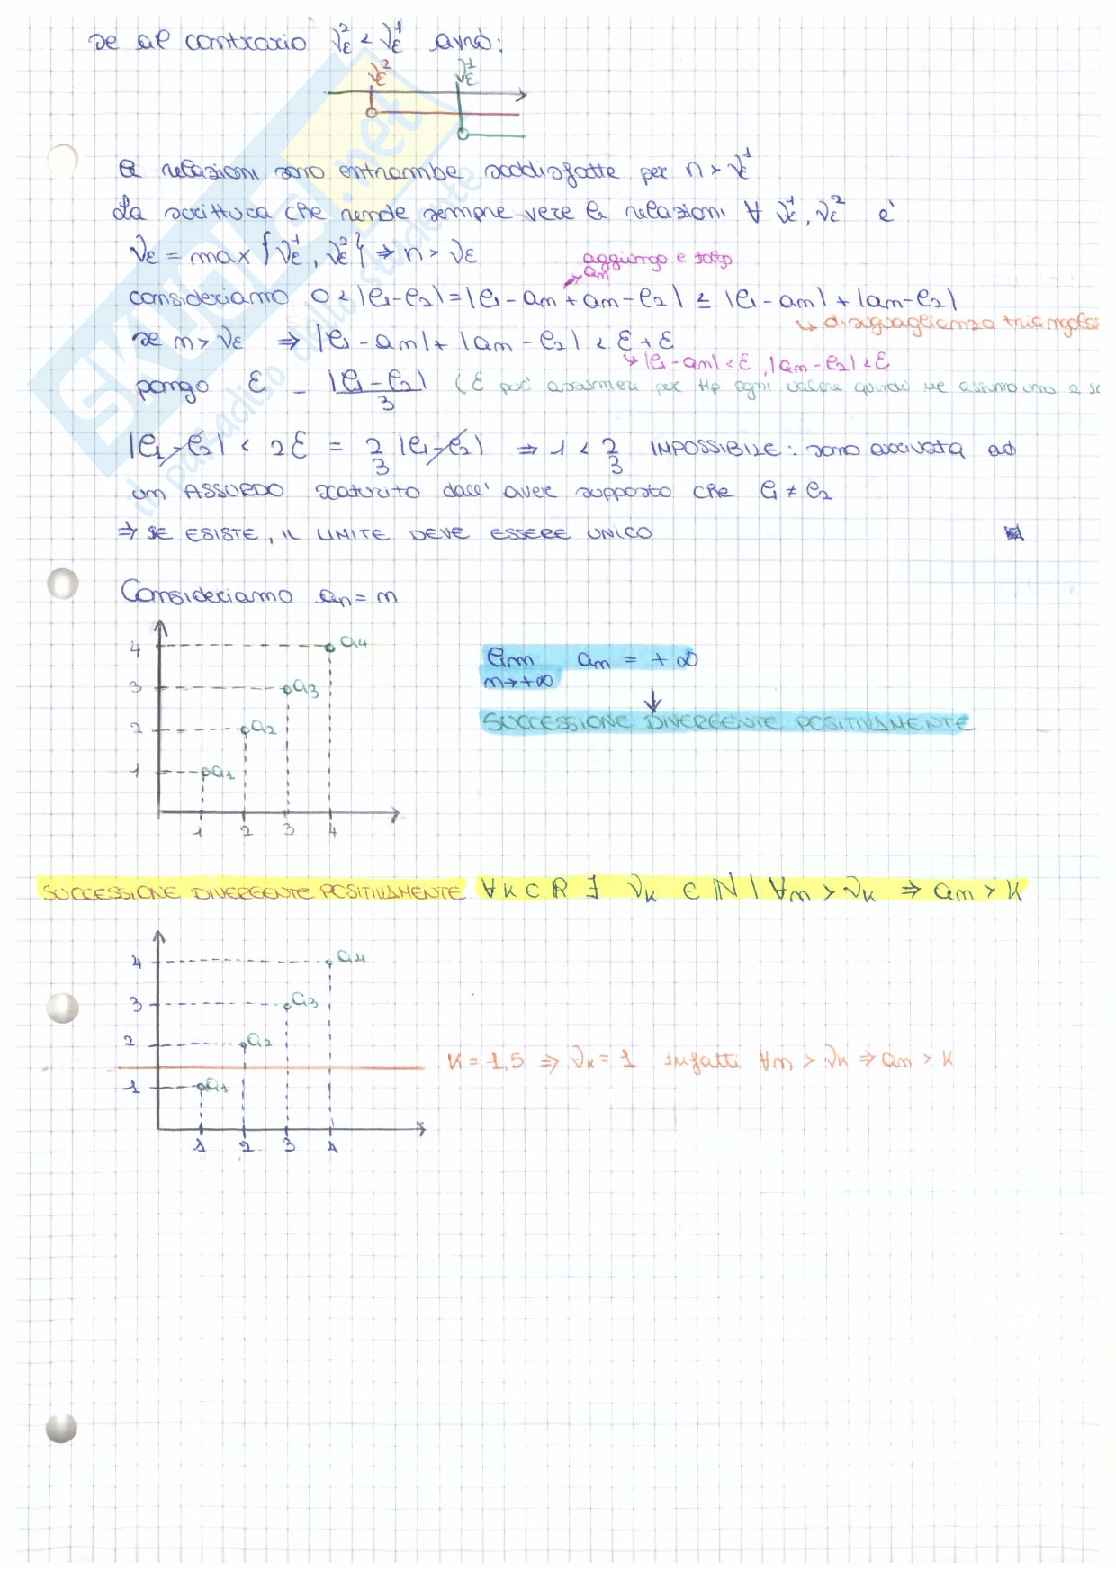 se al contrario ν²ε < ν¹ε avrò:
ν²ε ν¹ε
le relazioni sono entrambe soddisfatte per n > ν¹ε
La scrittura che rende sempre vere le relazioni ∀ ν¹ε, ν²ε è
νε = max {ν¹ε, ν²ε} ⇒ n > νε
aggiungo e tolgo
an
consideriamo 0 < |l1-l2| = |l1 - an + an - l2| ≤ |l1 - an| + |an - l2|
↳ disuguaglianza triangolare
se n > νε ⇒ |l1 - an| + |an - l2| < ε + ε
↳ |l1 - an| < ε, |an - l2| < ε
pongo ε = |l1 - l2| / 3 (ε può assumere per Hp ogni valore quindi ne assumo uno a
|l1 - l2| < 2ε = 2/3 |l1 - l2| ⇒ 1 < 2/3 IMPOSSIBILE: sono arrivata ad
un ASSURDO scaturito dall' aver supposto che l1 ≠ l2
⇒ SE ESISTE, IL LIMITE DEVE ESSERE UNICO
Consideriamo an = n
4 a4
3 a3
2 a2
1 a1
1 2 3 4
lim an = + ∞
n→+∞
↓
SUCCESSIONE DIVERGENTE POSITIVAMENTE
SUCCESSIONE DIVERGENTE POSITIVAMENTE ∀K ⊂ R ∃ νk ⊂ N | ∀n > νk ⇒ an > K
4 a4
3 a3
2 a2
K = 1,5 ⇒ νk = 1 infatti ∀n > νk ⇒ an > K
1 a1
1 2 3 4
SKUOLA.net
il paradiso dello studente